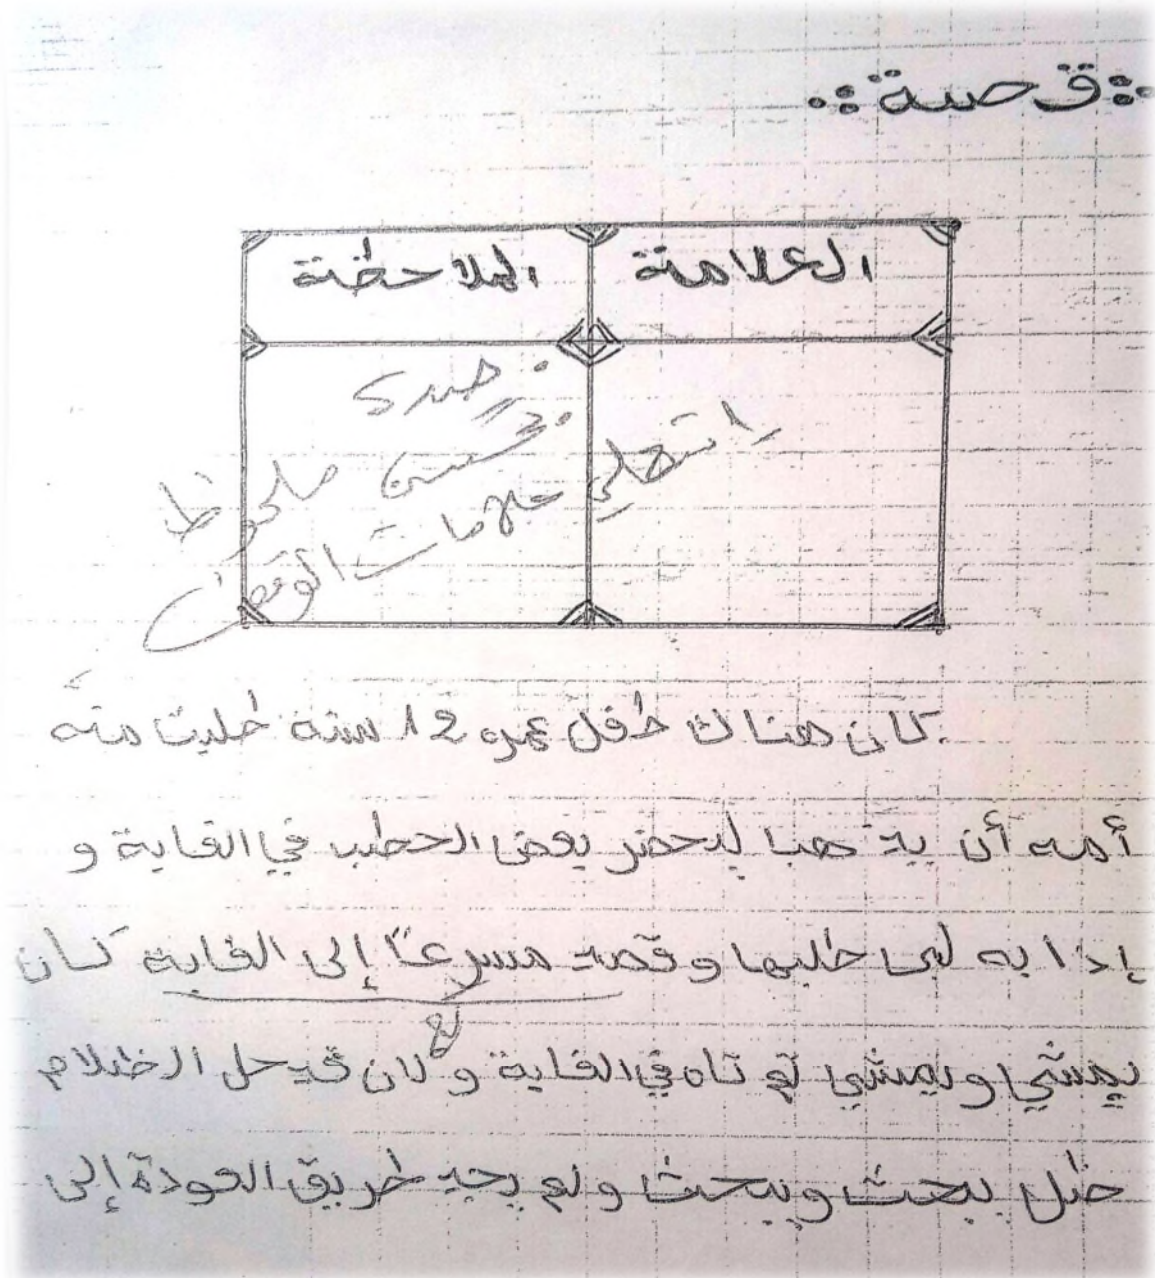 قصة
العلامة الملاحظة
جيدة
تحسن ملحوظ
انتبهي علامات الوقف
كان هناك طفل عمره 12 سنة طلبت منه
أمه أن يذهب ليحضر بعض الحطب في الغابة و
إذا به لبى طلبها و قصد مسرعًا إلى الغابة كان
يمشي و يمشي ثم تاه في الغابة و كان قد حل الظلام
ظل يبحث ويبحث ولم يجد طريق العودة إلى